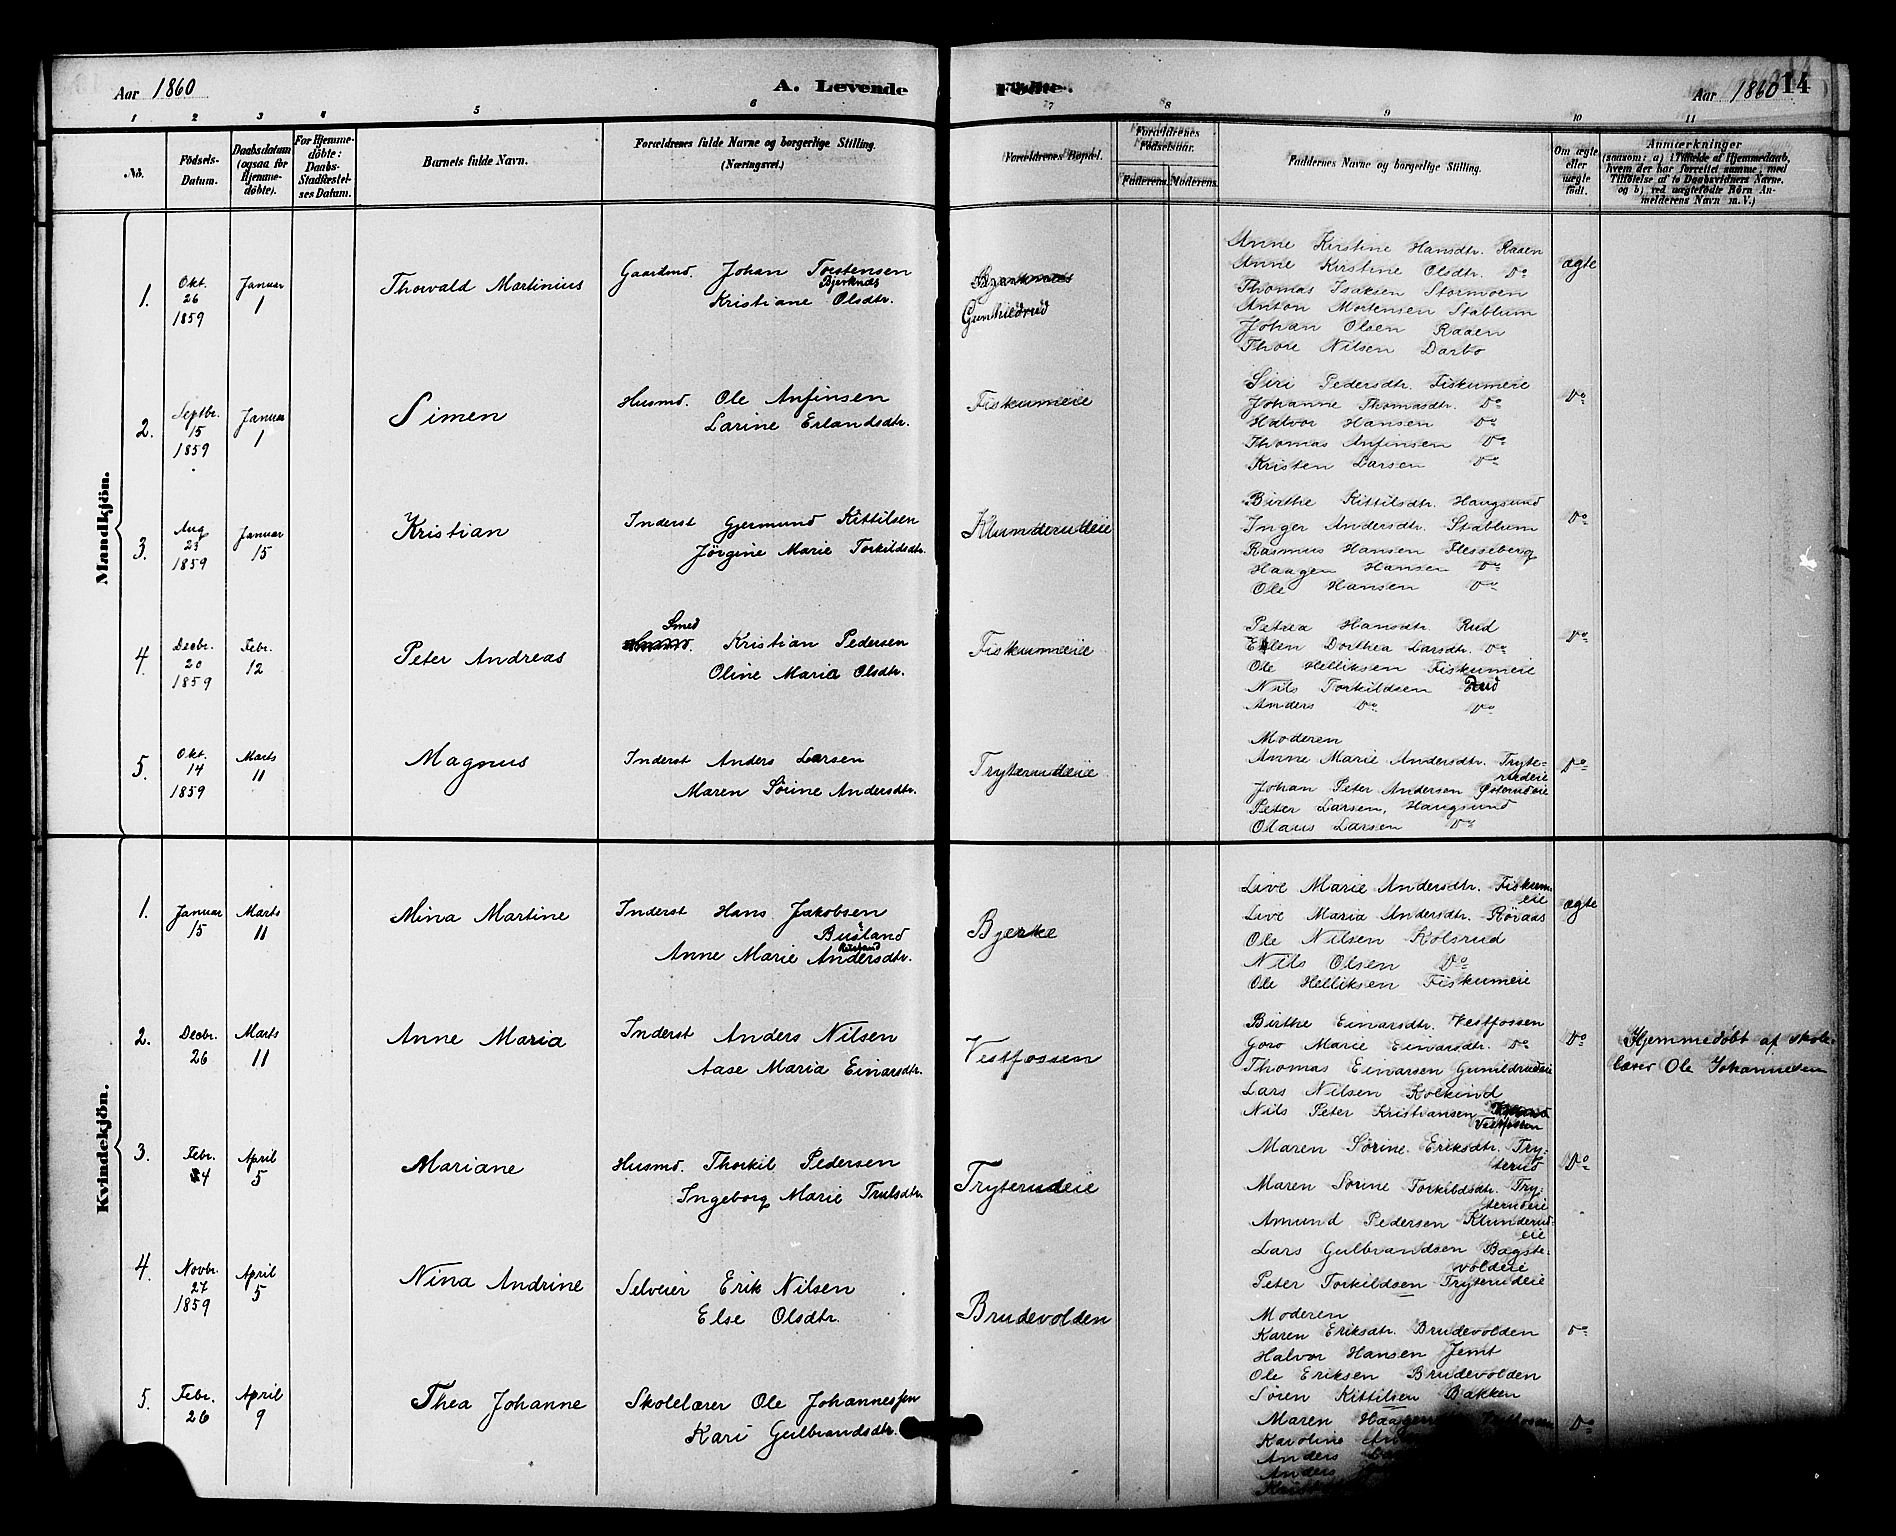 Aar 1860 A. Levende Fødte. Aar 1860 14
1 2 3 4 5 6 7 8 9 10 11
No.
Fødsels-
Datum.
Daabsdatum
(ogsaa for
Hjemme-
døbte).
For Hjemme-
døbte:
Daabs-
Stadfæstel-
ses Datum.
Barnets fulde Navn.
Forældrenes fulde Navne og borgerlige Stilling.
(Næringsvei.)
Forældrenes Bopæl.
Forældrenes
Fødselsaar.
Faderens. Moderens.
Faddernes Navne og borgerlige Stilling.
Om ægte
eller
uægte
født.
Anmærkninger
(saasom: a) i Tilfælde af Hjemmedaab,
hvem der har forrettet samme, med
Tilføielse af to Daabsvidners Navne.
og b) ved uægtefødte Børn An-
melderens Navn m. V.)
Mandkjön.
1.
Okt.
26
1859
Januar
1
Thorvald Martinius
Gaardmd. Johan Torstensen
Bjerknæs
Kristiane Olsdtr.
Gunhildrud
Anne Kirstine Hansdtr. Raaen
Anne Kirstine Olsdtr. Do
Thomas Isaksen Stormoen
Anton Mortensen Stablum
Johan Olsen Raaen
Thore Nilsen Darbo
ægte
2.
Septbr.
15
1859
Januar
1
Simen
Husmd. Ole Anfinsen
Larine Erlandsdtr.
Fiskumeie
Siri Pedersdtr. Fiskumeie
Johanne Thomasdtr. Do
Halvor Hansen Do
Thomas Anfinsen Do
Kristen Larsen Do
Do
3.
Aug
23
1859
Januar
15
Kristian
Inderst Gjermund Kittilsen
Jörgine Marie Torkildsdtr.
Klunderudeie
Birthe Kittilsdtr. Haugsund
Inger Andersdtr. Stablum
Rasmus Hansen Flesseberg
Haagen Hansen Do
Ole Hansen Do
Do
4.
Decbr.
20
1859
Febr.
12
Peter Andreas
Smed
Kristian Pedersen
Oline Maria Olsdtr.
Fiskumeie
Petrea Hansdtr. Rud
Ellen Dorthea Larsdtr. Do
Ole Helliksen Fiskumeie
Nils Torkildsen Rud
Anders Do Do
Do
5.
Okt.
14
1859
Marts
11
Magnus
Inderst Anders Larsen
Maren Sörine Andersdtr.
Tryterudeie
Moderen
Anne Marie Andersdtr. Tryte-
rudeie
Johan Peter Andersen Østerudeie
Peter Larsen, Haugsund
Olaus Larsen Do
Do
Kvindekjön.
1.
Januar
15
Marts
11
Mina Martine
Inderst Hans Jakobsen
Busland
Anne Marie Andersdtr.
Bjerke
Live Marie Andersdtr. Fiskum-
eie
Live Maria Andersdtr. Røvaas
Ole Nilsen Kolsrud
Nils Olsen Do
Ole Helliksen Fiskumeie
ægte
2.
Decbr.
26
Marts
11
Anne Maria
Inderst Anders Nilsen
Aase Maria Einarsdtr.
Vestfossen
Birthe Einarsdtr. Vestfossen
Goro Marie Einarsdtr. Do
Thomas Einarsen Gunildrudeie
Lars Nilsen Kolkind
Nils Peter Kristiansen
Vestfossen
Do
Hjemmedøbt af skole-
lærer Ole Johannesen
3.
Febr.
4
April
5
Mariane
Husmd. Thorkil Pedersen
Ingeborg Marie Trulsdtr.
Tryterudeie
Maren Sörine Eriksdtr. Try-
terud
Maren Sörine Torkildsdtr. Try-
terudeie
Amund Pedersen Klunderud-
eie
Lars Gulbrandsen Bagste-
voldeie
Peter Torkildsen Tryterudeie
Do
4.
Novbr.
27
1859
April
5
Nina Andrine
Selveier Erik Nilsen
Else Olsdtr.
Brudevolden
Moderen
Karen Eriksdtr. Brudevolden
Halvor Hansen Jemt
Ole Eriksen Brudevolden
Sören Kittilsen Bakken
Do
5.
Febr.
26
April
9
Thea Johanne
Skolelærer Ole Johannessen
Kari Gulbrandsdtr.
Maren Vestfossen
Karoline
Anders
Anders
Do